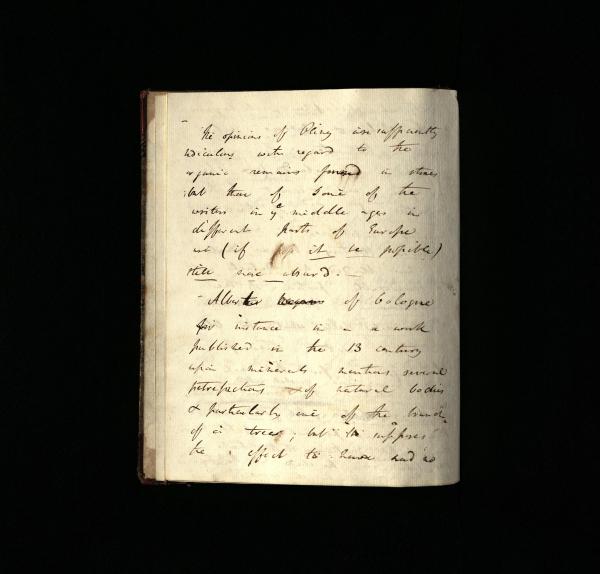 The opinions of Pliny are sufficiently
ridiculous with regard to the
organic remains found in stones
but those of some of the
writers in ye middle ages in
different parts of Europe
are (if it be possible)
still more absurd. —
- Albert of Cologne
for instance in a work
published in the 13 century
upon minerals mentions several
petrefactions of natural bodies
& particularly one of the branch
of a tree; but he supposes
the effect to have